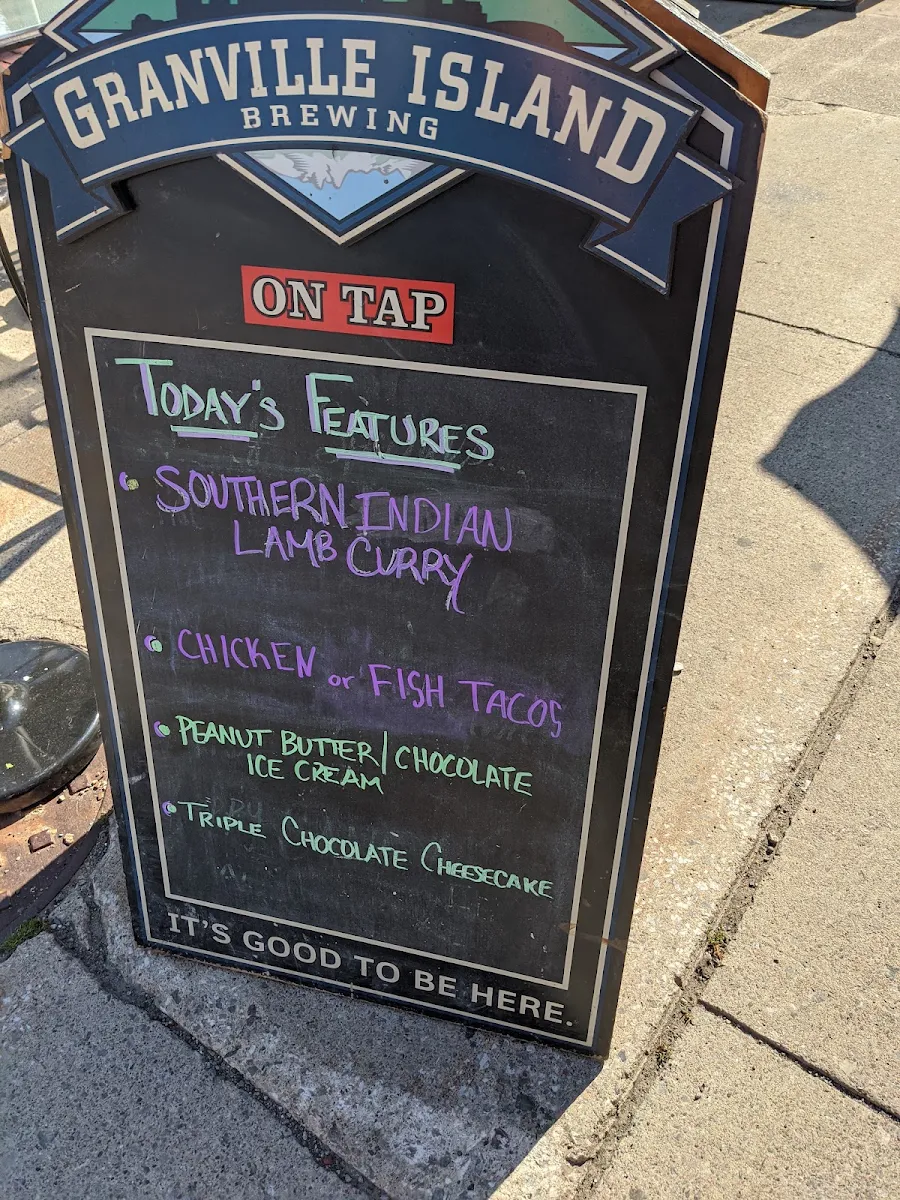 GRANVILLE ISLAND
BREWING
ON TAP
TODAY'S FEATURES
SOUTHERN INDIAN
LAMB CURRY
CHICKEN or FISH TACOS
PEANUT BUTTER/CHOCOLATE
ICE CREAM
TRIPLE CHOCOLATE CHEESECAKE
IT'S GOOD TO BE HERE.